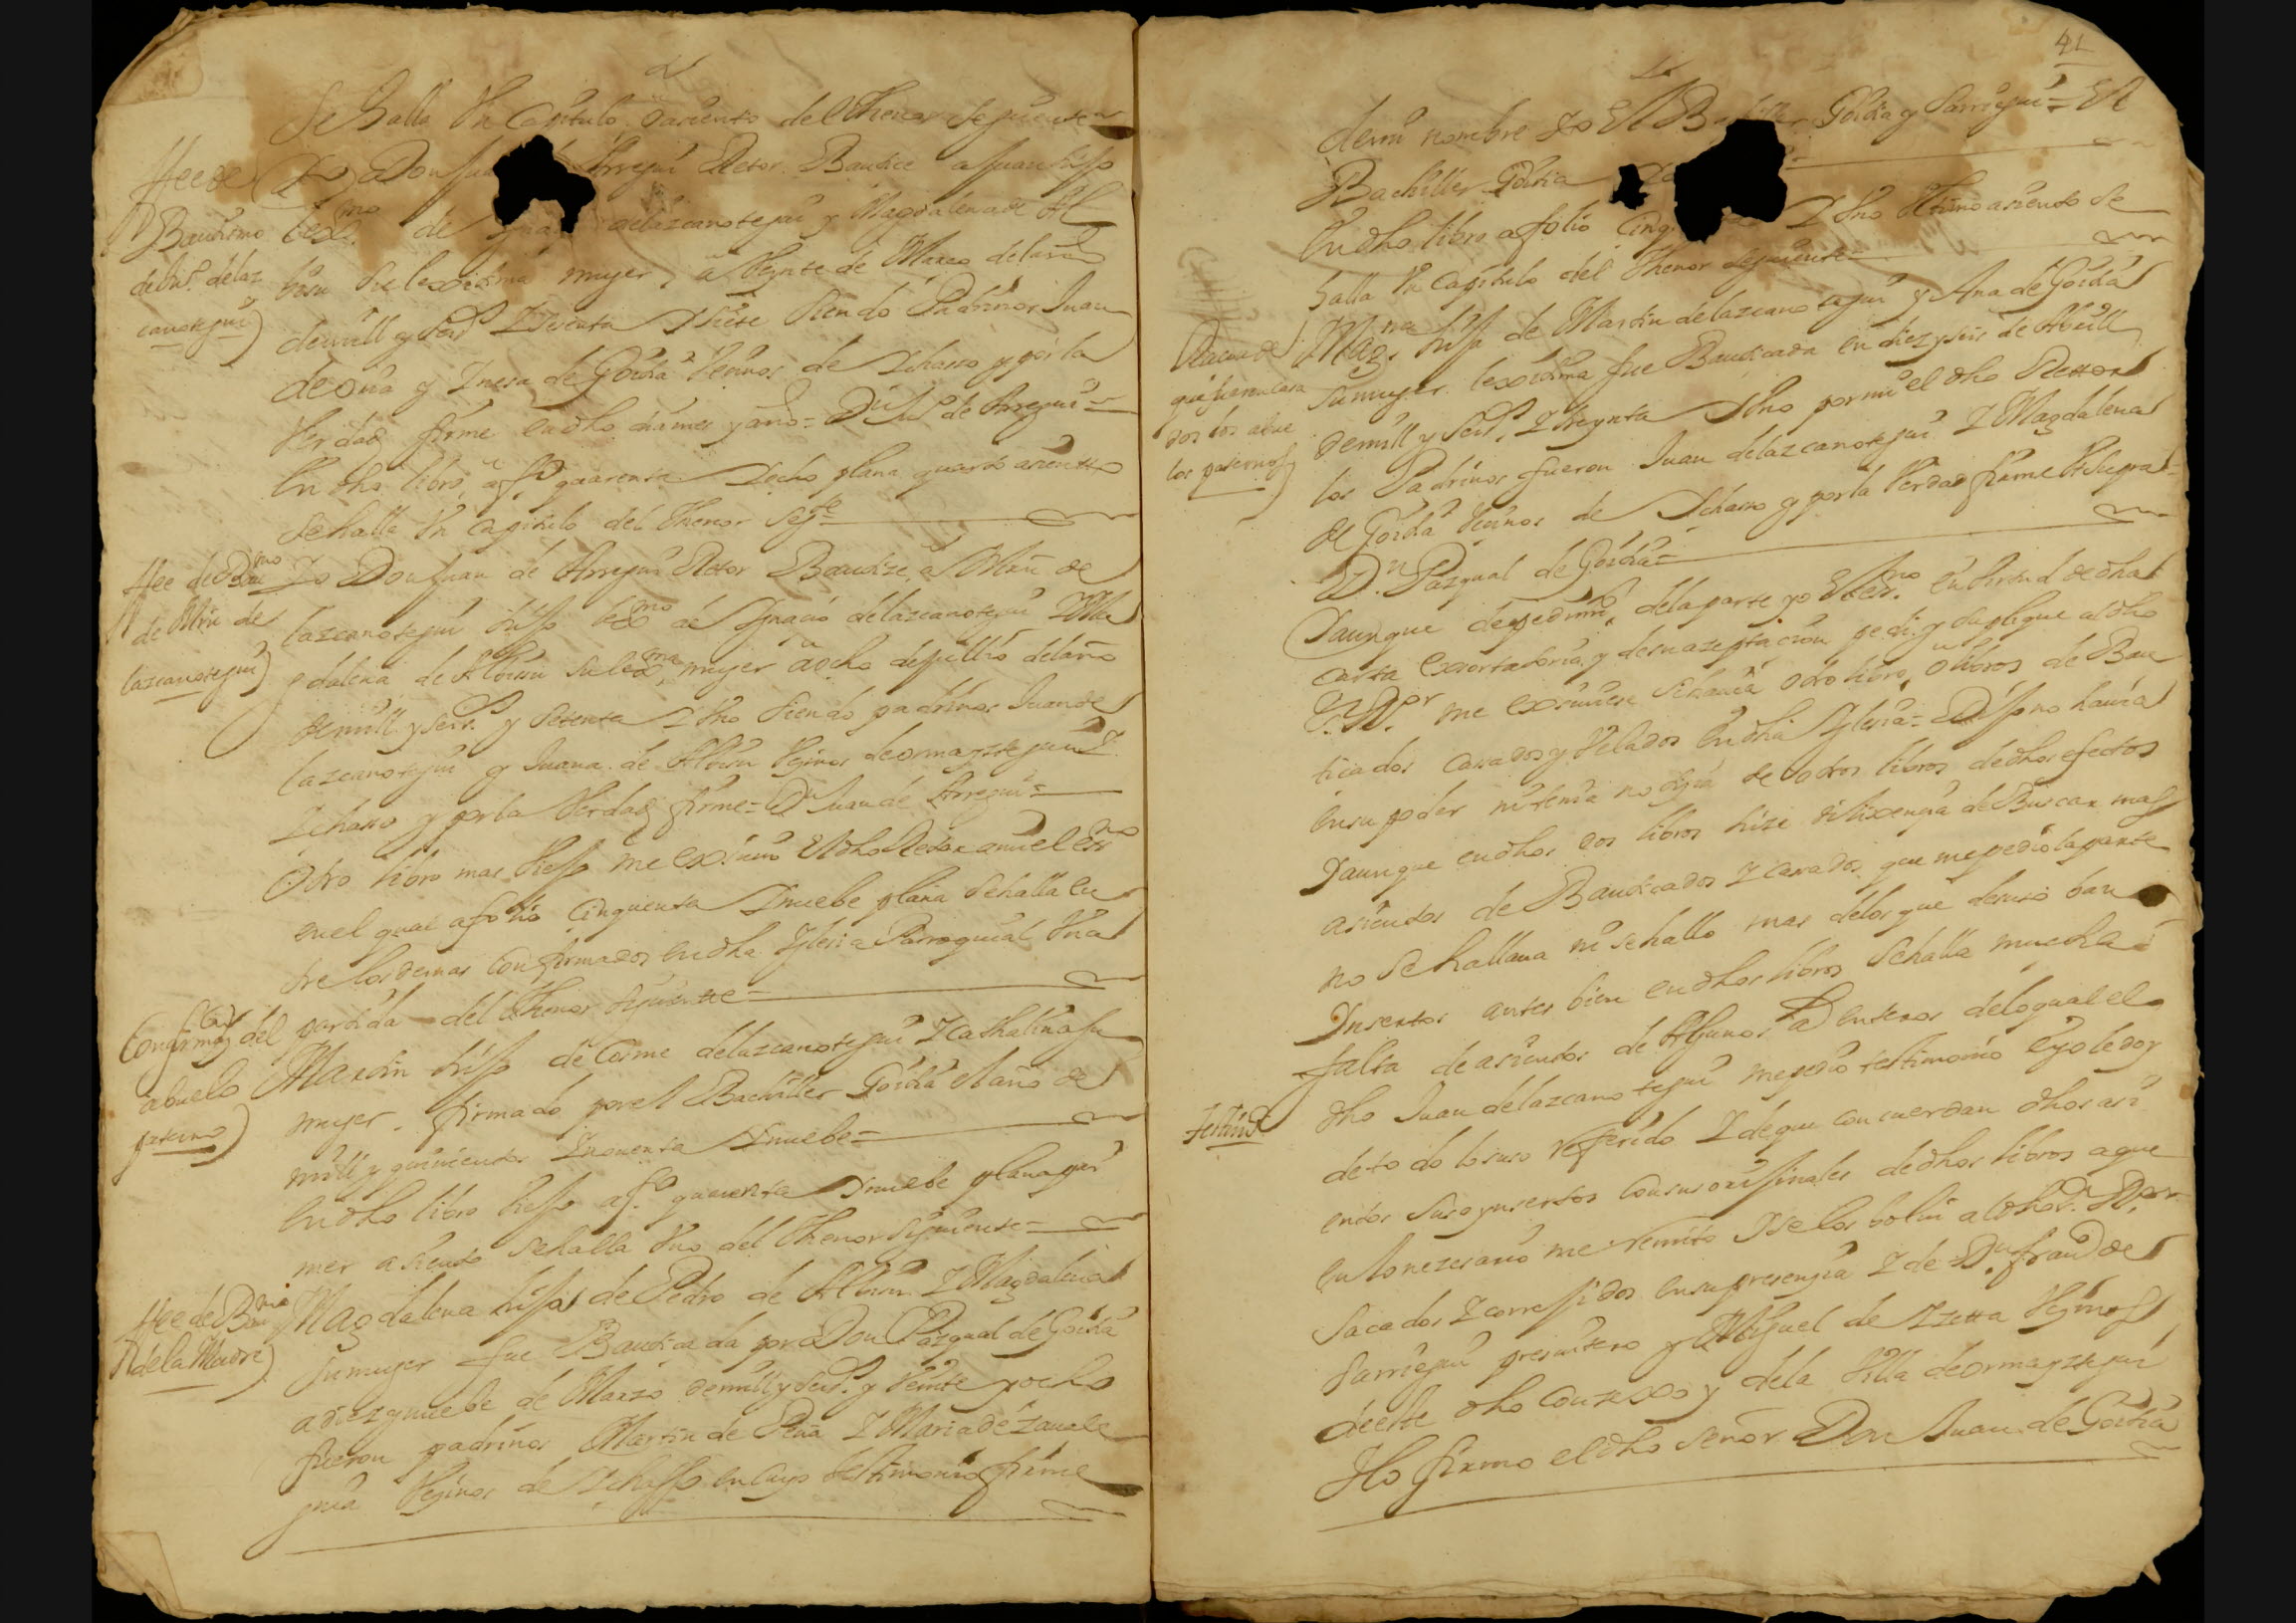 Se Halla Vn Capitulo y asiento del thenor Seguiente
ffee de
Bautismo
de Ju.º de laz
canotegui
Yo Don Jua Arregui Retor Bautice a Juan hijo
lex.mo de Ygna de lazcanotegui y Magdalena de Al
bisu su lexitima mujer, a Veynte de Março del año
de mill y seis.s y sesenta y siete siendo Padrinos Juan
de oria y Ynesa de Goitia Veçinos de Ychasso y por la
Verdad firme en dho dia mes y año = D.n Ju.º de Arregui =
En dho libro, a f.º quarenta y ocho plana quarto asiento
se halla Vn capitulo del thenor seg.te
ffee de Bau.mo
de Min de
lazcanotegui
Yo Don Juan de Arregui Retor Bautize, a Min de
lazcanotegui hijo lex.mo de Ygnacio de lazcanotegui Y Ma
gdalena de Albisu su lex.ma mujer a ocho de jullio del año
de mill y seis.s y setenta y Vno siendo padrinos Juan de
lazcanotegui y Juana de Albisu Veçinos de ormayztegui Y
Ychasso y por la Verdad firme = D.n Juan de Arregui =
Otro libro mas Viejo me exiuio El dho Retor a mi el ess.no
en el qual a folio Cinquenta y nuebe plana se halla en
tre los demas Confirmados en dha Yglesia Parroquial Vna
partida del thenor siguiente =
Confirmaz.on del
abuelo
paterno
Martin hijo de Cosme de lazcanotegui Y Cathalina su
muger. firmado por el Bachiller Goitia el año de
mill y quinientos Y nouenta y nuebe =
En dho libro Viejo a f.º quarenta y nuebe plana pri
mer asiento se halla Vno del thenor siguiente =
ffee de Bau.mo
de la Madre
Magdalena hija de Pedro de Albisu Y Magdalena
su muger fue Bautiçada por Don Pasqual de Goitia
a diez y nuebe de Marzo de mill y seis.s y Veinte y ocho
fueron padrinos Martin de Oria Y Maria de zauale
guia Veçinos de Ychasso en cuyo testimonio firme
41
de mi nombre yo El Goitia y Sarriegui = El
Bachiller Goitia
En dho libro a folio Cinq Y Vno Vltimo asiento se
halla Vn capitulo del thenor seguiente =
que fueron casa
dos los abue
los paternos
hija de Martin de lazcanotegui y Ana de Goitia
su muger lexitima fue Bautiçada en diez y seis de Abrill
de mill y seis.s Y treynta y Vno por mi el dho Rettor
los Padrinos fueron Juan de lazcanotegui Y Magdalena
de Goitia Veçinos de Ychasso y por la Verdad firme
D.n Pasqual de Goitia =
Y aunque de pedim.to de la parte yo El ess.no en Virtud de dha
carta exortatoria y de su azeptacion pedi y suplique al dho
S.r R.or me exiuiese si hauia otro libro, o libros de Bau
tiçados casados y Velados en dha Yglesia = Dijo no hauia
en su poder ni tenia notiçia de otros libros de dhos efectos
Y aunque en dhos dos libros hize dilixençia de Buscar mas
asientos de Bautiçados Y casados que me pedio la parte
no se hallaua ni se hallo mas de los que de suso ban
Ynsertos antes bien en dhos libros se halla mucha
falta de asientos de Algunos de lo qual el
testim.º
dho Juan de lazcanotegui me pedio testimonio E yo le doy
de todo lo suso referido Y de que concuerdan dhos asi
entos suso ynsertos con sus orijinales de dhos libros a que
en lo nezesario me remito Y se los bolui al dho S.r R.or
sacados Y correjidos en su presençia Y de D.n fran.co de
Sarriegui presuitero y Miguel de Yzetta Veçinos
de este dho Conzejo y de la Villa de ormayztegui
Y lo firmo el dho señor Don Juan de Goitia